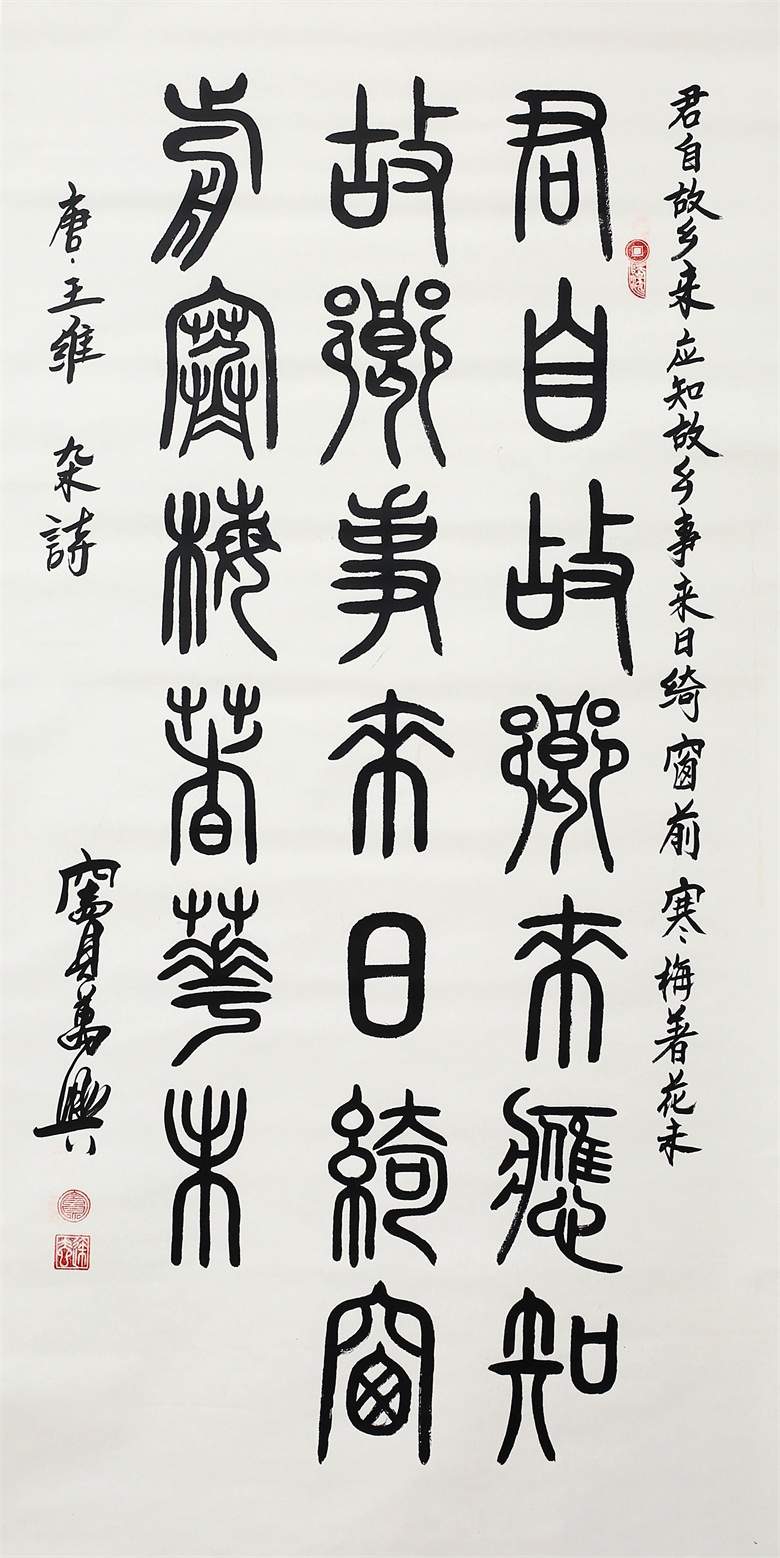 君自故乡来应知故乡事来日绮窗前寒梅著花未
君自故鄉来應知
故鄉事来日綺窗
前寒梅著華未
唐·王维 杂詩
竇萬興